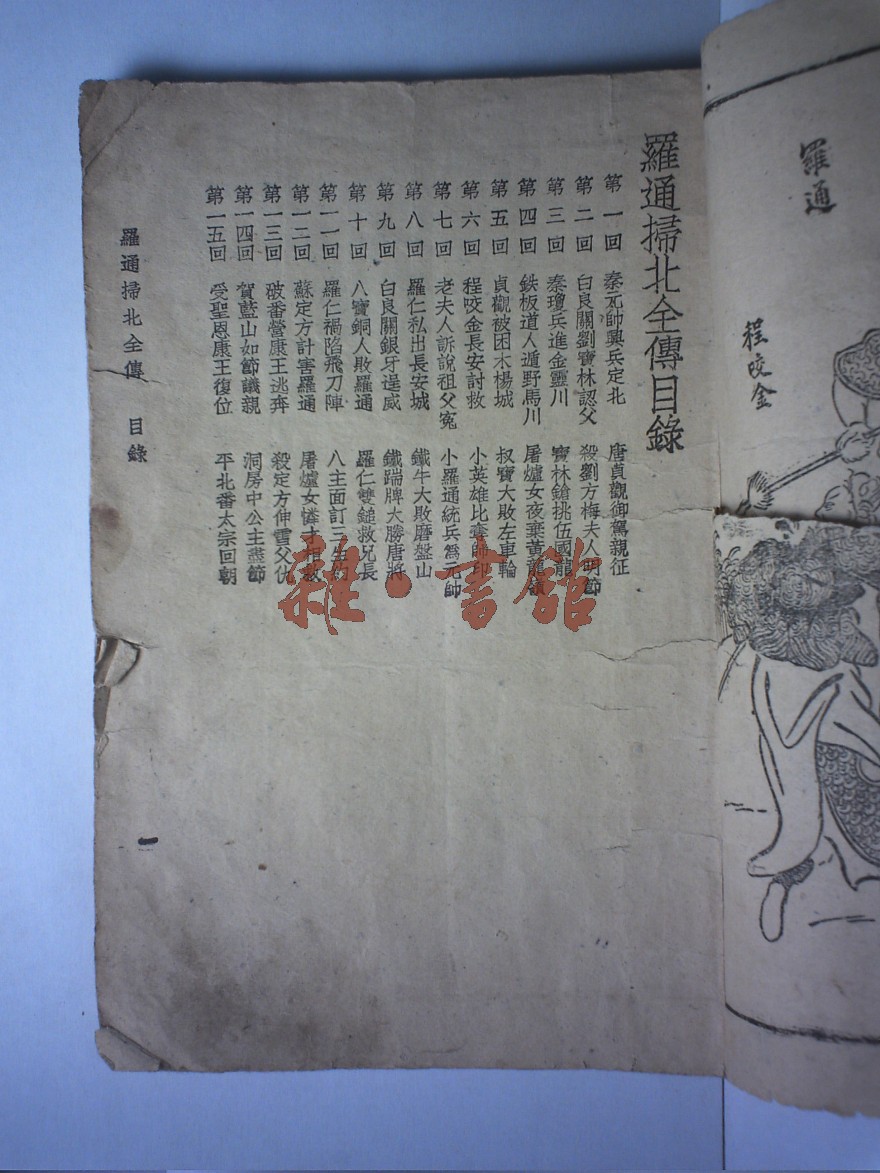 羅通
程咬金
羅通掃北全傳目錄
第一回 秦元帥興兵定北 唐貞觀御駕親征
第二回 白良關劉寶林認父 殺劉方梅夫人明節
第三回 秦瓊兵進金靈川 寶林鎗挑伍國龍
第四回 鉄板道人遁野馬川 屠爐女夜棄黃龍嶺
第五回 貞觀被困木楊城 叔寶大敗左車輪
第六回 程咬金長安討救 小英雄比奪帥印
第七回 老夫人訴說祖父寃 小羅通統兵爲元帥
第八回 羅仁私出長安城 鐵牛大敗磨盤山
第九回 白良關銀牙逞威 鐵踹牌大勝唐將
第十回 八寶銅人敗羅通 羅仁雙鎚救兄長
第一一回 羅仁禍陷飛刀陣 八主面訂三生約
第一二回 蘇定方計害羅通 屠爐女憐才相救
第一三回 破番營康王逃奔 殺定方伸雪父仇
第一四回 賀藍山如節議親 洞房中公主盡節
第一五回 受聖恩康王復位 平北番太宗回朝
羅通掃北全傳 目錄
一
雜·書館